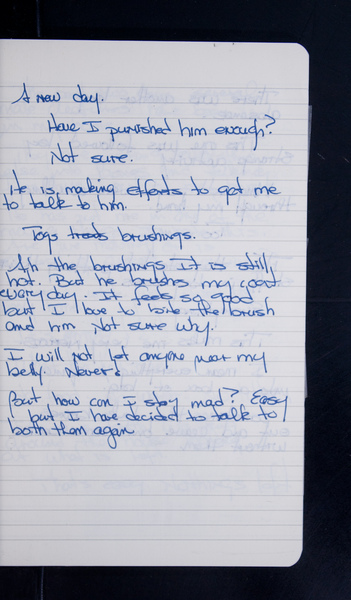 A new day.
Have I punished him enough?
Not sure.
He is making efforts to get me
to talk to him.
Toys treats brushings.
Ah the brushings It is still
hot. But he brushes my coat
every day. It feels so good
but I love to bite the brush
and him Not sure why.
I will not let anyone near my
belly. Never!
But how can I stay mad? Easy
but I have decided to talk to
both them again